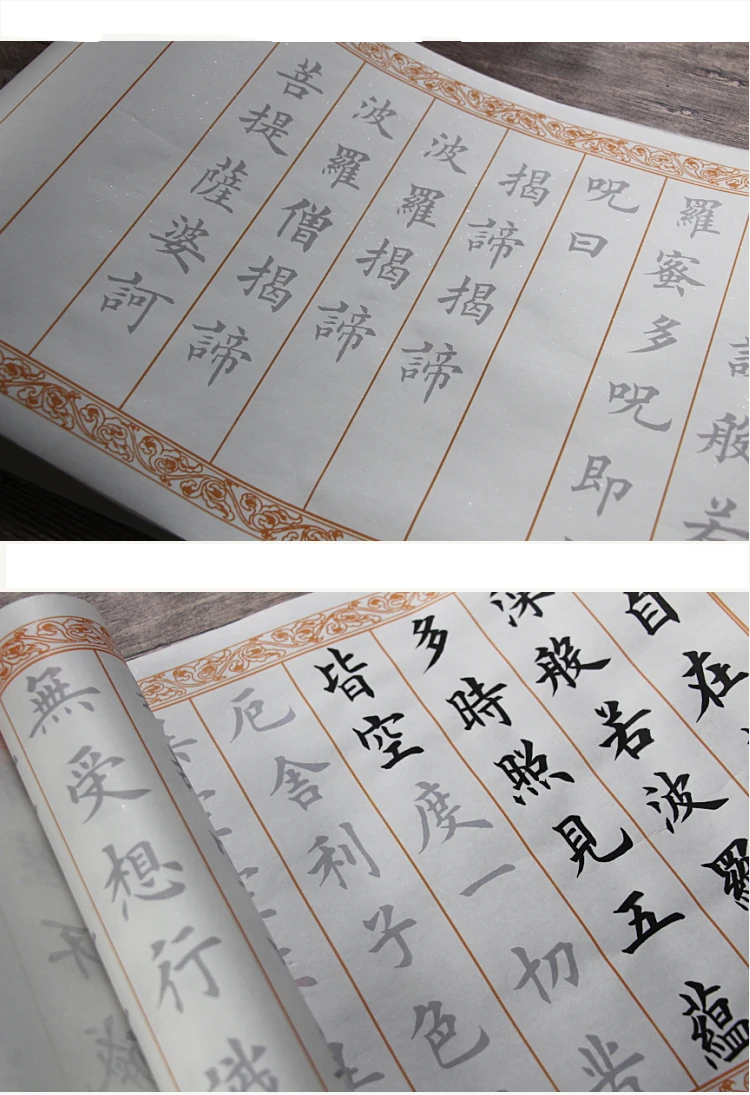 般若
羅蜜多呪即
呪曰
揭諦揭諦
波羅揭諦
波羅僧揭諦
菩提薩婆訶
自在
深般若波羅
多時照見五蘊
皆空度一切苦
厄舍利子色
無受想行識